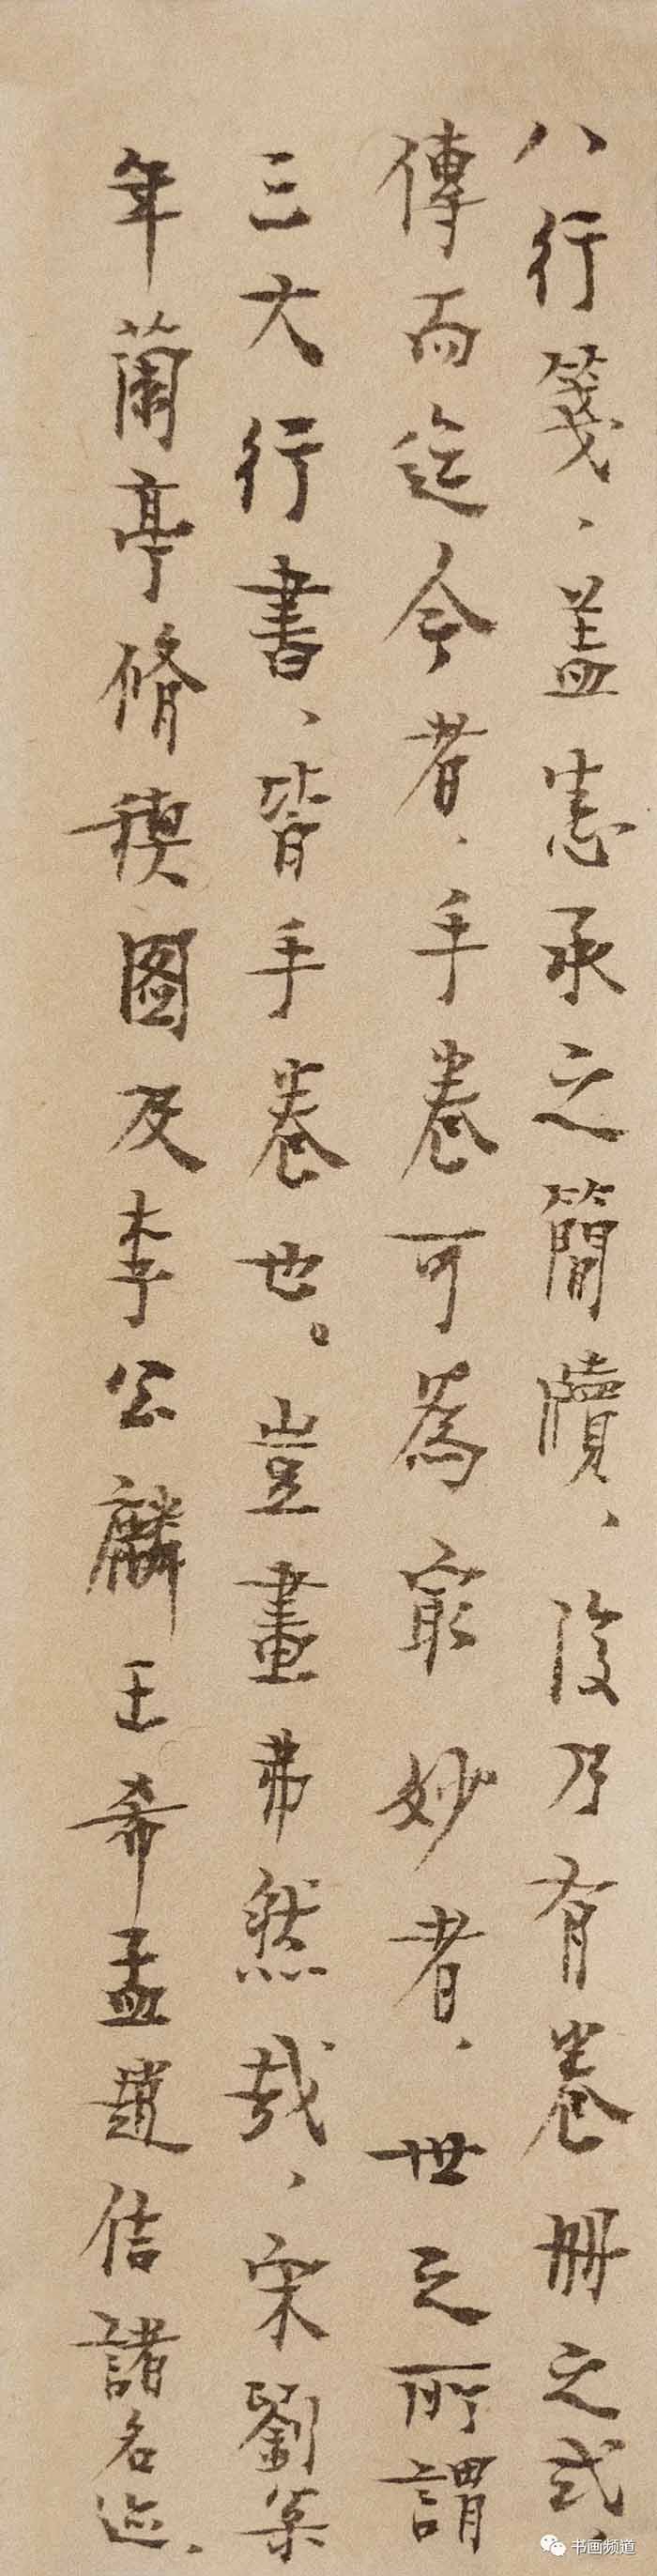 八行箋、蓋悉承之簡牘、後乃有卷冊之式、
傳而迄今者、手卷可為最妙者、世之所謂
三大行書、皆手卷也。豈畫弗然哉、宋劉枀
年蘭亭脩禊圖及李公麟王希孟趙佶諸名迹、
书画频道